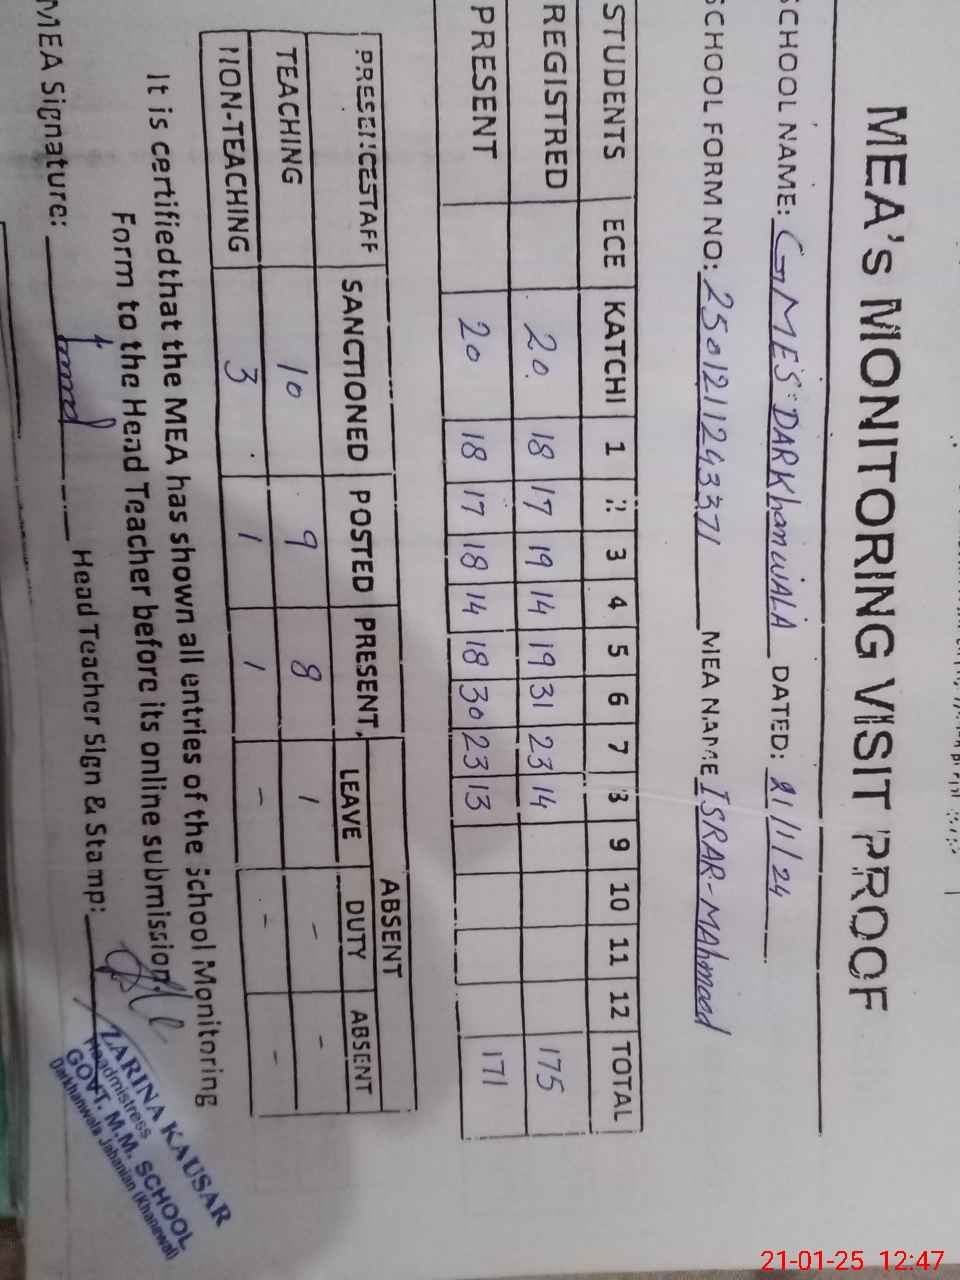 MEA'S MONITORING VISIT PROOF
SCHOOL NAME: GMES DARKhanWALA DATED: 21/1/24
SCHOOL FORM NO: 2501211243371 MEA NAME ISRAR-MAhmood
STUDENTS ECE KATCHI 1 2 3 4 5 6 7 8 9 10 11 12 TOTAL
REGISTRED 20 18 17 19 14 19 31 23 14 175
PRESENT 20 18 17 18 14 18 30 23 13 171
PRESENCESTAFF SANCTIONED POSTED PRESENT ABSENT
LEAVE DUTY ABSENT
TEACHING 10 9 8 1 - -
NON-TEACHING 3 1 1 - - -
It is certifiedthat the MEA has shown all entries of the School Monitoring
Form to the Head Teacher before its online submission.
MEA Signature: Head Teacher Sign & Stamp:
ZARINA KAUSAR
Headmistress
GOVT. M.M. SCHOOL
Darkhanwala Jahanian (Khanewal)
21-01-25 12:47